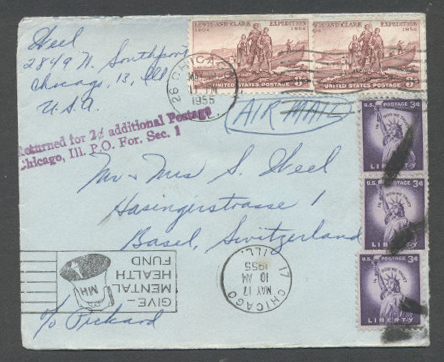 Heel
2849 N. Southport
Chicago, 13, Ill
U.S.A.
LEWIS AND CLARK EXPEDITION
1804 1954
UNITED STATES POSTAGE 3¢
LEWIS AND CLARK EXPEDITION
1804 1954
UNITED STATES POSTAGE 3¢
26 CHICA
MAY
17
1955
(AIR MAIL)
Returned for 2¢ additional Postage
Chicago, Ill. P.O. For. Sec. 1
U.S. POSTAGE 3¢
IN GOD WE TRUST
LIBERTY
U.S. POSTAGE 3¢
IN GOD WE TRUST
LIBERTY
U.S. POSTAGE 3¢
IN GOD WE TRUST
LIBERTY
Mr + Mrs S. Heel
Hasingerstrasse 1
Basel, Switzerland
c/o Pickard
GIVE-
MENTAL
HEALTH
FUND
MH
17 CHICAGO ILL.
MAY 17
10 AM
1955